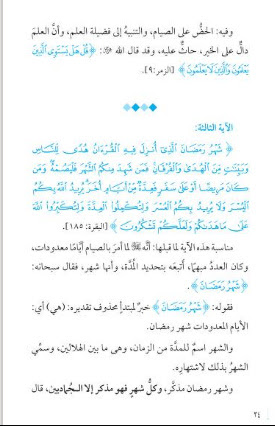 وفيه: الحضُّ على الصيام، والتنبيهُ إلى فضيلة العلم، وأنَّ العلمَ
دالٌّ على الخير، حاثٌّ عليه، وقد قال الله ﷻ: ﴿قُلْ هَلْ يَسْتَوِي الَّذِينَ
يَعْلَمُونَ وَالَّذِينَ لَا يَعْلَمُونَ﴾ [الزمر:٩].
الآية الثالثة:
﴿شَهْرُ رَمَضَانَ الَّذِي أُنزِلَ فِيهِ الْقُرْءَانُ هُدًى لِّلنَّاسِ
وَبَيِّنَاتٍ مِّنَ الْهُدَىٰ وَالْفُرْقَانِ فَمَن شَهِدَ مِنكُمُ الشَّهْرَ فَلْيَصُمْهُ وَمَن
كَانَ مَرِيضًا أَوْ عَلَىٰ سَفَرٍ فَعِدَّةٌ مِّنْ أَيَّامٍ أُخَرَ يُرِيدُ اللَّهُ بِكُمُ
الْيُسْرَ وَلَا يُرِيدُ بِكُمُ الْعُسْرَ وَلِتُكْمِلُوا الْعِدَّةَ وَلِتُكَبِّرُوا اللَّهَ
عَلَىٰ مَا هَدَاكُمْ وَلَعَلَّكُمْ تَشْكُرُونَ﴾ [البقرة: ١٨٥].
مناسبة هذه الآية لما قبلها: أنَّه ﷻ لما أمرَ بالصيام أيَّامًا معدودات،
وكان العددُ مبهمًا، أتبعَه بتحديد المُدَّة، وأنها شهر، فقال سبحانه:
﴿شَهْرُ رَمَضَانَ﴾.
فقوله: ﴿شَهْرُ رَمَضَانَ﴾ خبرٌ لمبتدأٍ محذوف تقديره: (هي) أي:
الأيام المعدودات شهر رمضان.
والشهر اسمٌ للمدَّة من الزمان، وهى ما بين الهلالين، وسمِّي
الشهرُ بذلك لاشتهاره.
وشهر رمضان مذكَّر، وكلُّ شهرٍ فهو مذكر إلا الجماديين، قال
٢٤